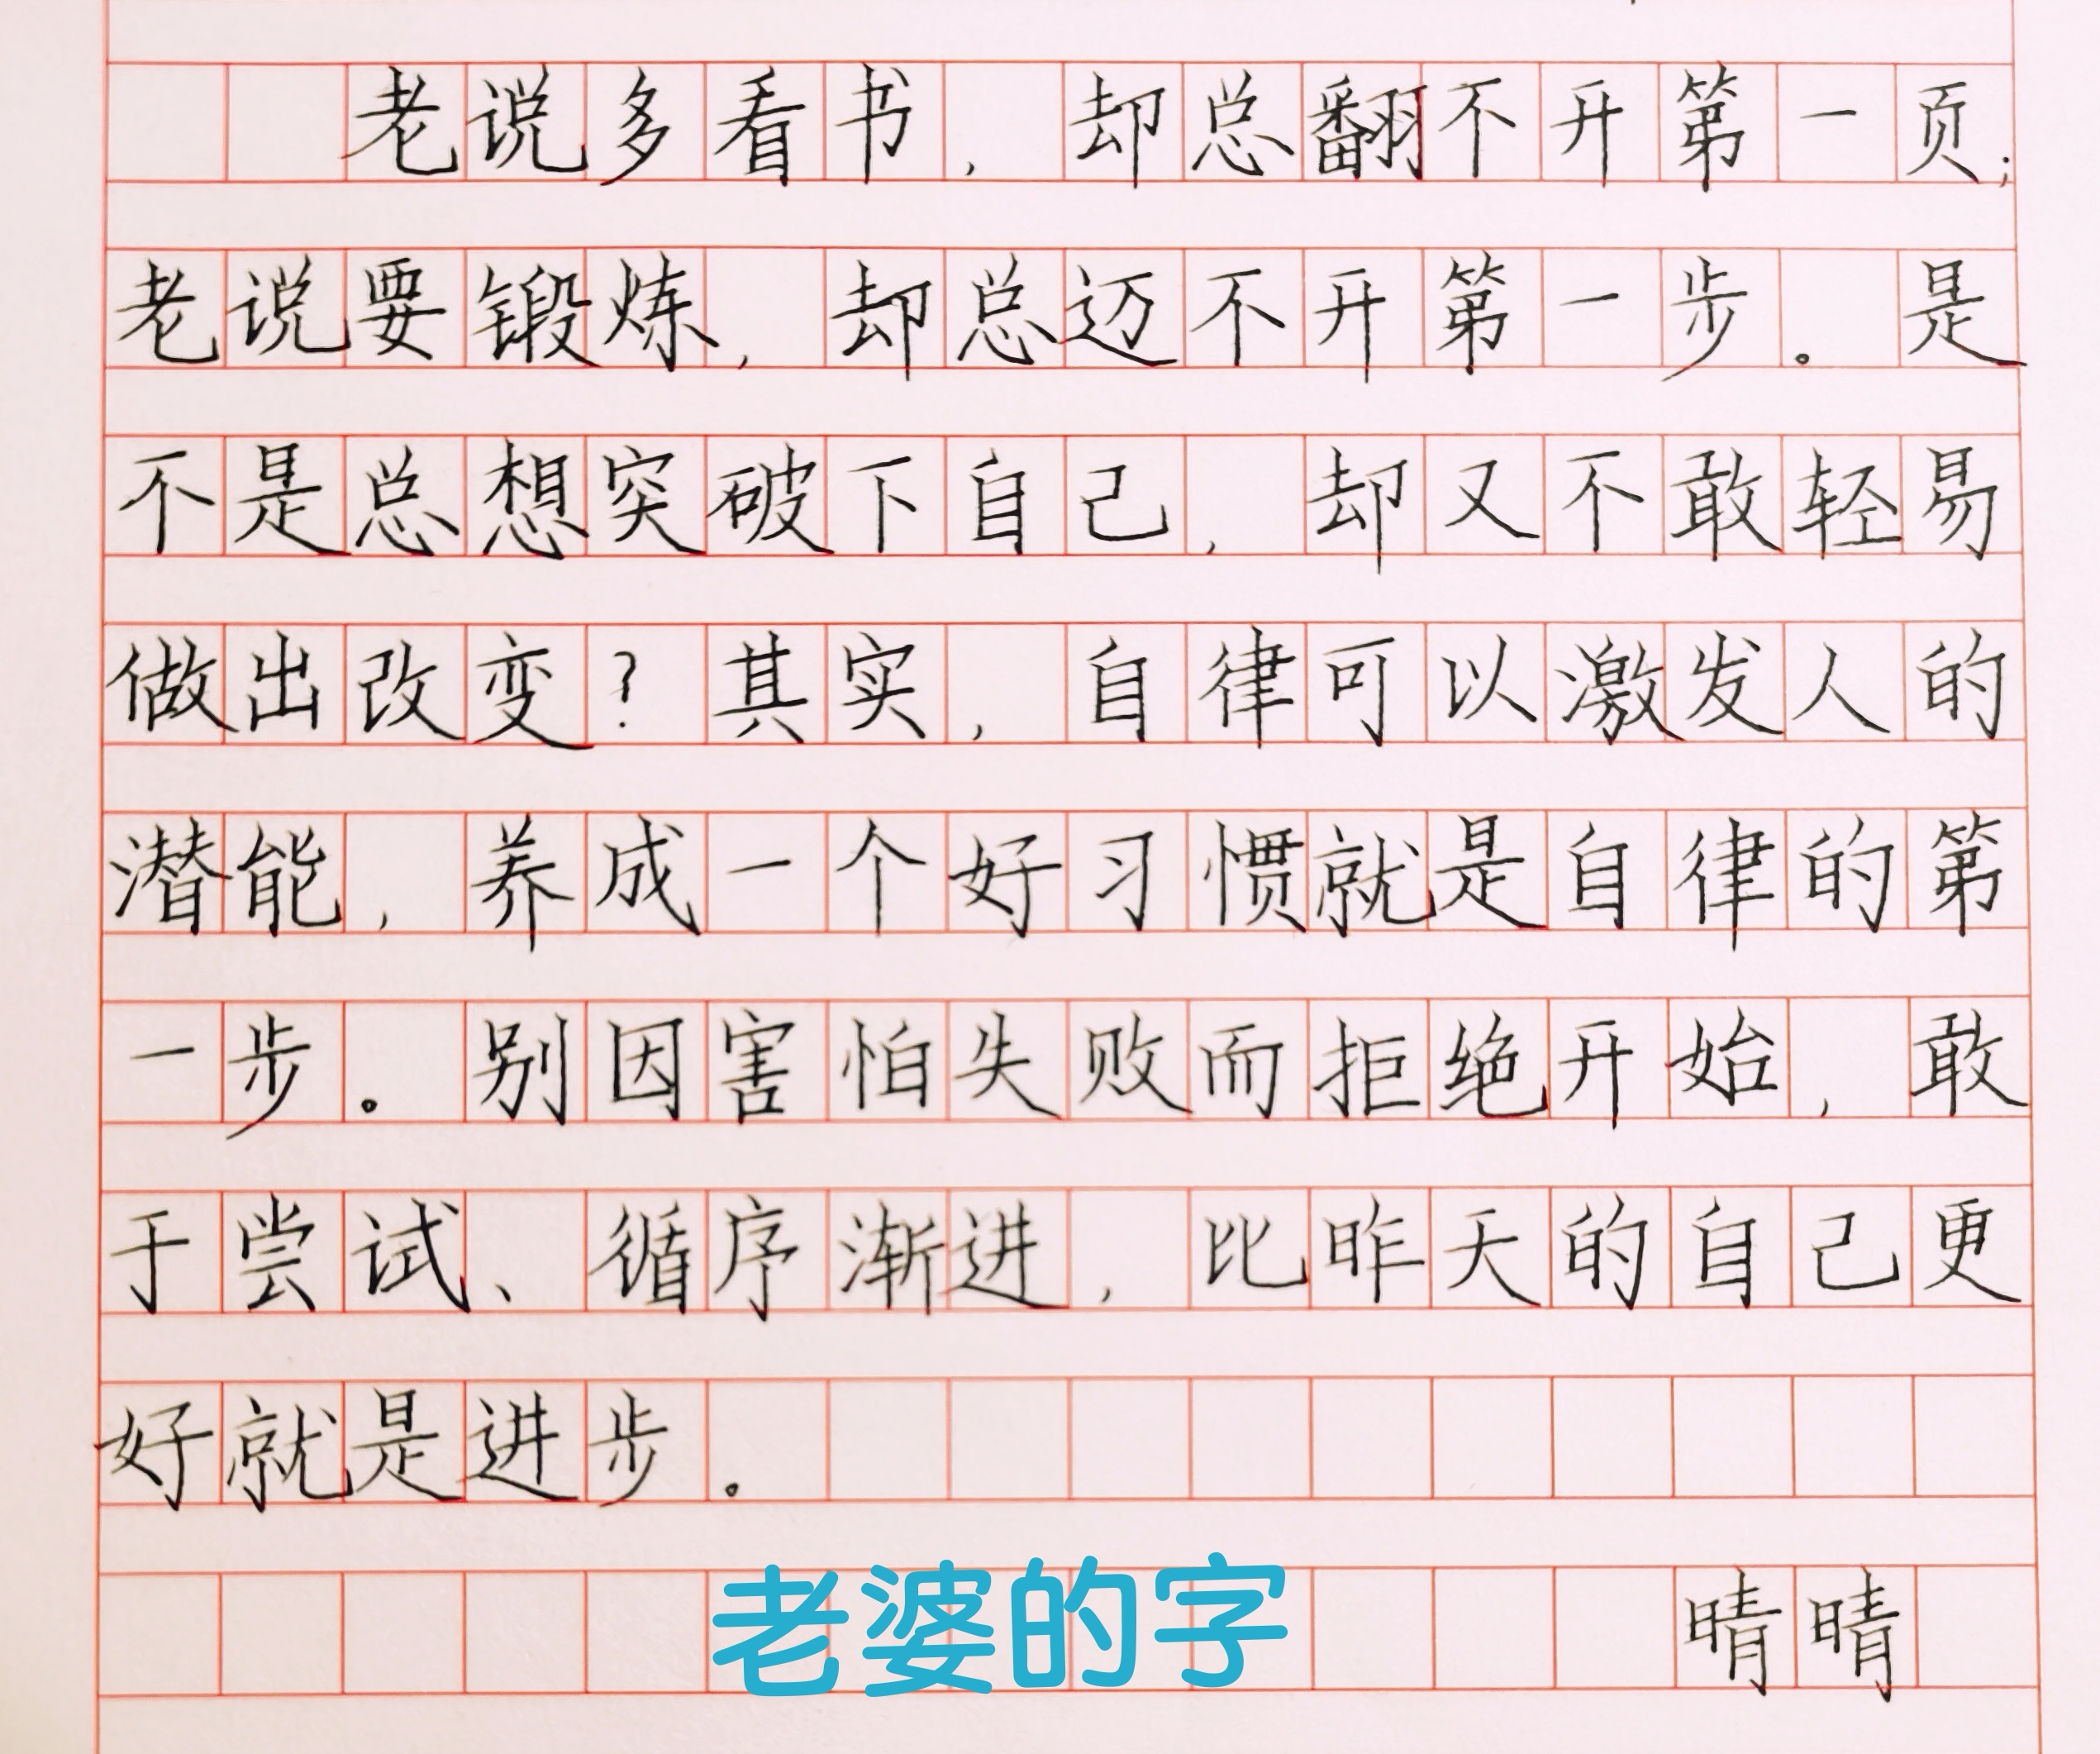 老说多看书，却总翻不开第一页；
老说要锻炼，却总迈不开第一步。是
不是总想突破下自己，却又不敢轻易
做出改变？其实，自律可以激发人的
潜能，养成一个好习惯就是自律的第
一步。别因害怕失败而拒绝开始，敢
于尝试、循序渐进，比昨天的自己更
好就是进步。
老婆的字
晴晴